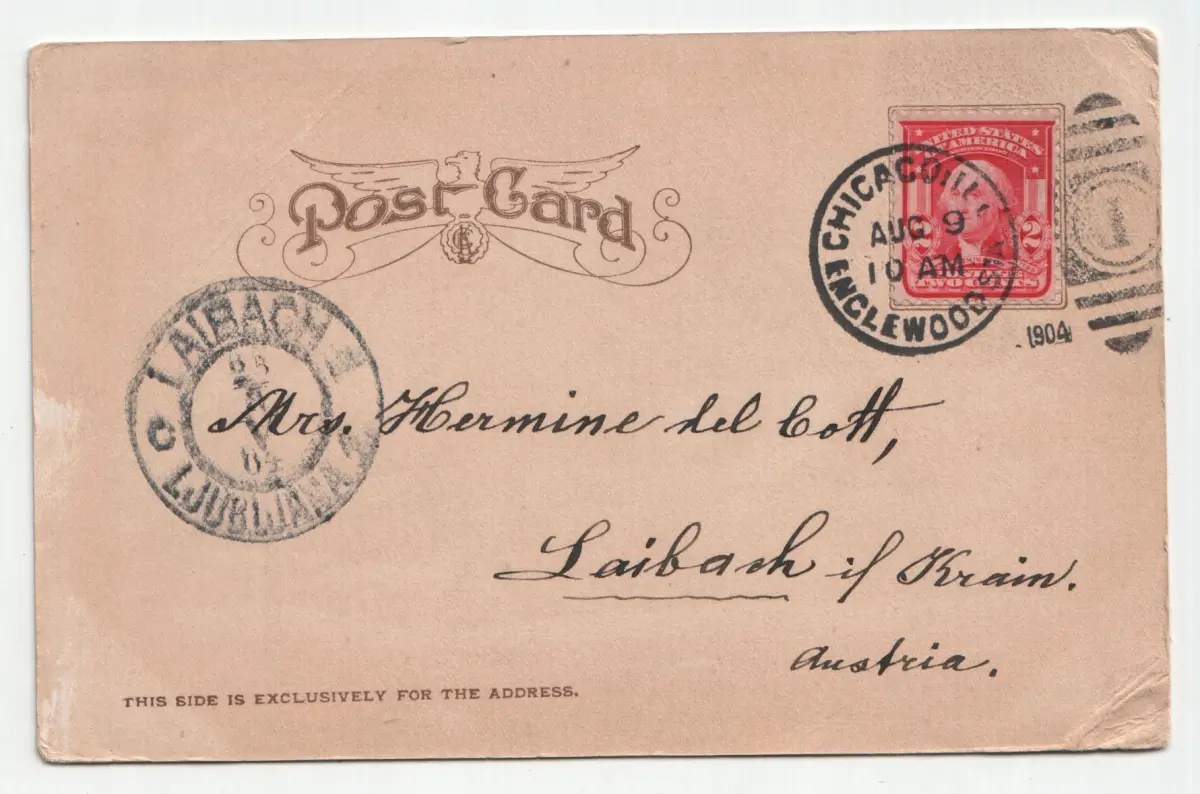 Post Card
UNITED STATES
OF AMERICA
2 2
TWO CENTS
CHICAGO, ILL.
AUG 9
10 AM
ENGLEWOOD STA
1
1904
LAIBACH
25
04
LJUBLJANA
Mrs. Hermine del Cott,
Laibach i/ Krain.
Austria.
THIS SIDE IS EXCLUSIVELY FOR THE ADDRESS.